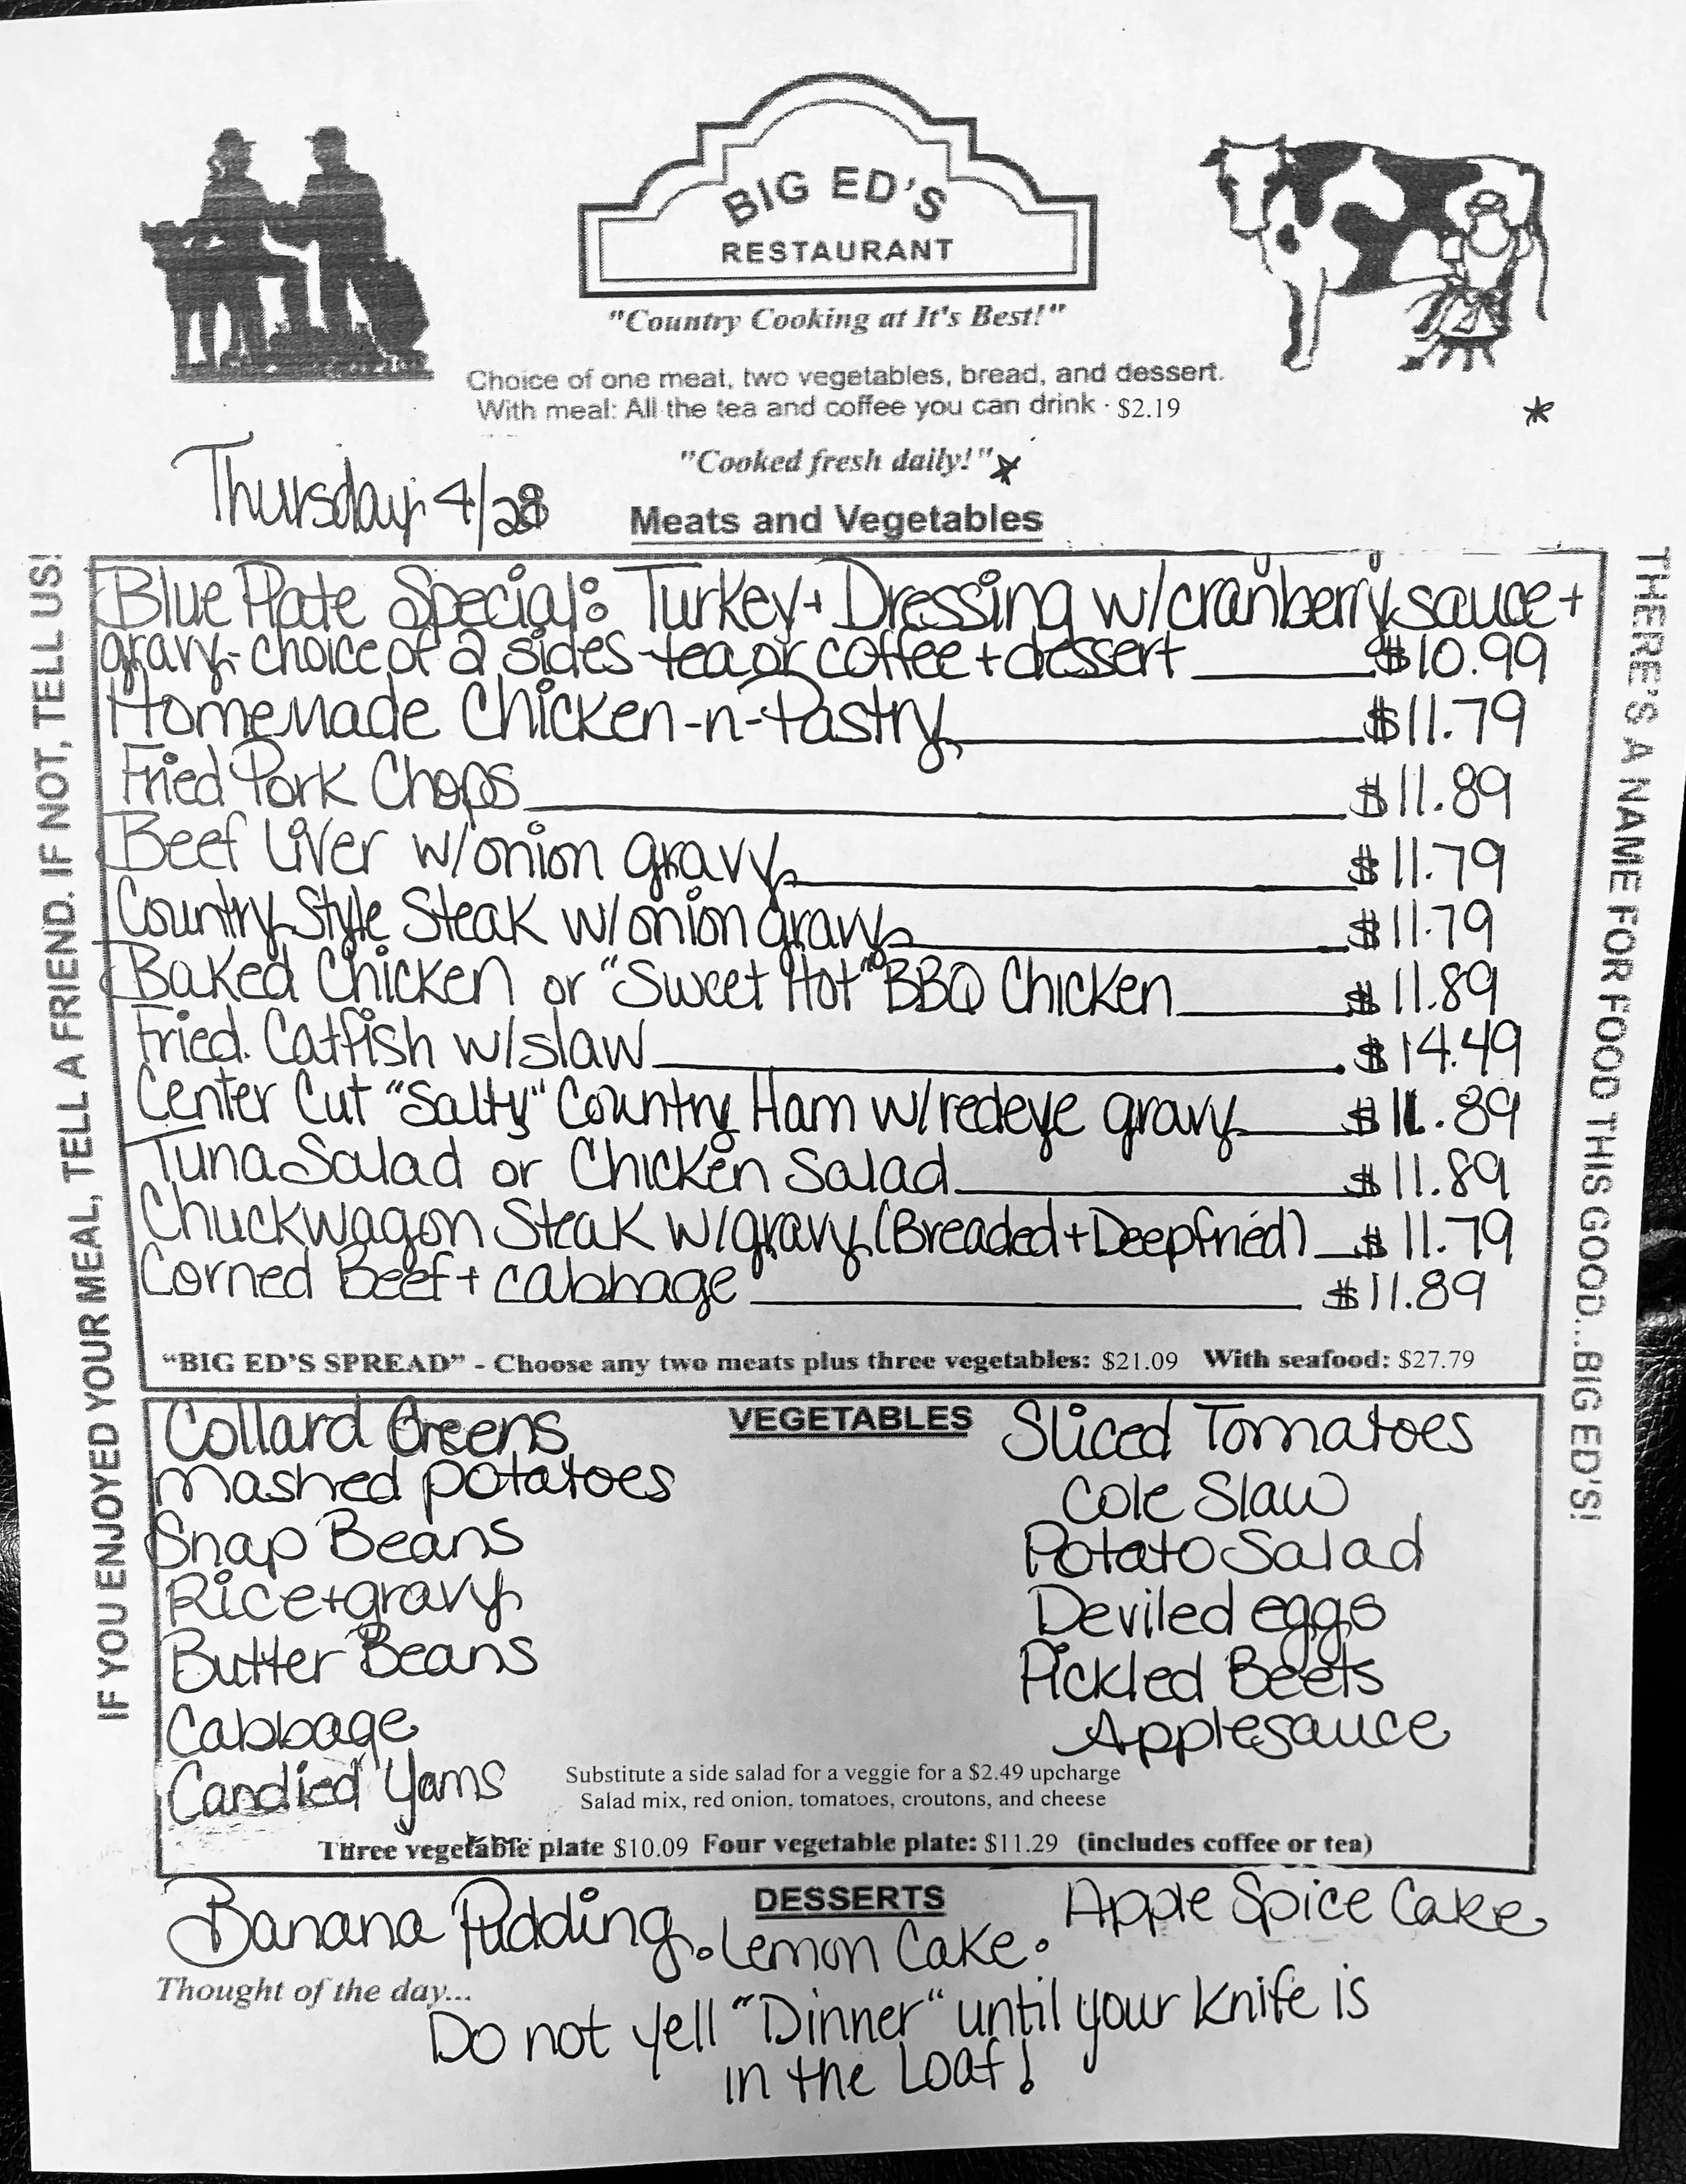 BIG ED'S
RESTAURANT
"Country Cooking at It's Best!"
Choice of one meat, two vegetables, bread, and dessert.
With meal: All the tea and coffee you can drink · $2.19
"Cooked fresh daily!"
Thursday 4/28
Meats and Vegetables
IF YOU ENJOYED YOUR MEAL, TELL A FRIEND. IF NOT, TELL US!
Blue Plate Special: Turkey + Dressing w/cranberry sauce +
gravy - choice of 2 sides - tea or coffee + dessert $10.99
Homemade Chicken-n-Pastry $11.79
Fried Pork Chops $11.89
Beef Liver w/onion gravy $11.79
Country Style Steak w/onion gravy $11.79
Baked Chicken or "Sweet Hot" BBQ Chicken $11.89
Fried Catfish w/slaw $14.49
Center Cut "Salty" Country Ham w/redeye gravy $11.89
Tuna Salad or Chicken Salad $11.89
Chuckwagon Steak w/gravy (Breaded + Deepfried) $11.79
Corned Beef + cabbage $11.89
"BIG ED'S SPREAD" - Choose any two meats plus three vegetables: $21.09 With seafood: $27.79
THERE'S A NAME FOR FOOD THIS GOOD...BIG ED'S!
VEGETABLES
Collard Greens
mashed potatoes
Snap Beans
Rice + gravy
Butter Beans
Cabbage
Candied Yams
Sliced Tomatoes
Cole Slaw
Potato Salad
Deviled eggs
Pickled Beets
Applesauce
Substitute a side salad for a veggie for a $2.49 upcharge
Salad mix, red onion, tomatoes, croutons, and cheese
Three vegetable plate $10.09 Four vegetable plate: $11.29 (includes coffee or tea)
DESSERTS
Banana Pudding • Lemon Cake • Apple Spice Cake
Thought of the day...
Do not yell "Dinner" until your knife is
in the Loaf!